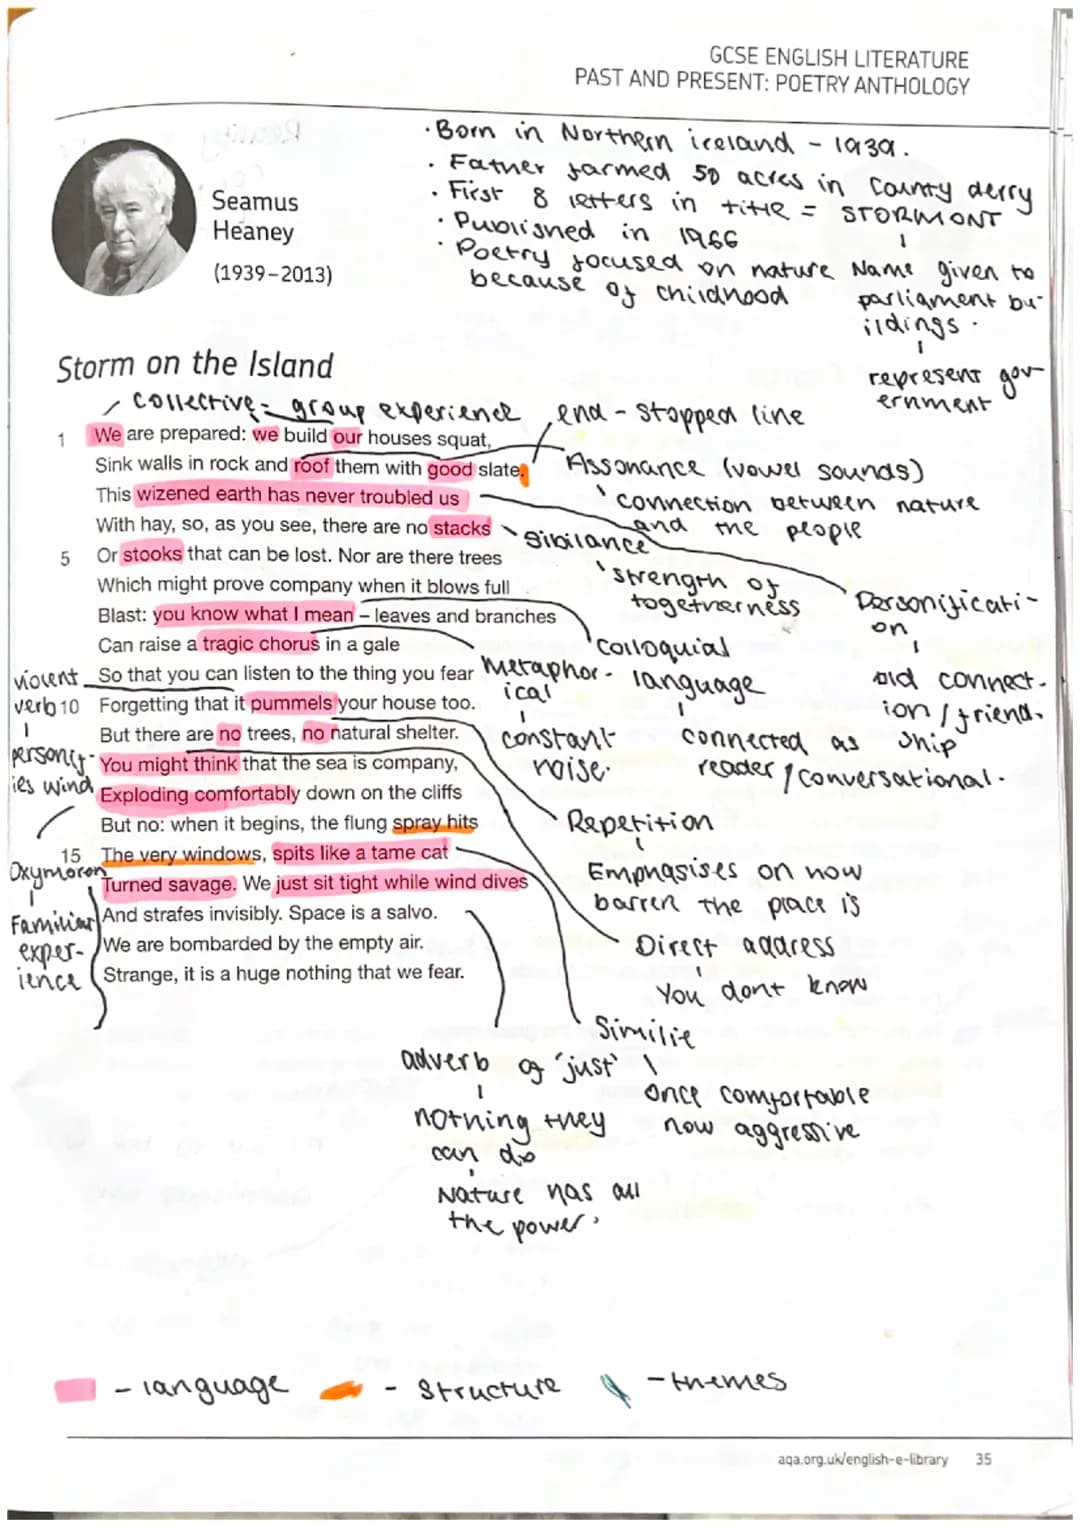 GCSE ENGLISH LITERATURE
PAST AND PRESENT: POETRY ANTHOLOGY
· Born in Northern ireland - 1939.
· Father farmed 50 acres in County derry
· First 8 letters in title = STORMONT
· Published in 1966
· Poetry focused on nature
because of childhood
Name given to
parliament bu-
ildings.
represent gov
ernment
Seamus
Heaney
(1939–2013)
Storm on the Island
Collective = group experience
end - stopped line
1 We are prepared: we build our houses squat,
Sink walls in rock and roof them with good slate.
This wizened earth has never troubled us
With hay, so, as you see, there are no stacks
5 Or stooks that can be lost. Nor are there trees
Which might prove company when it blows full
Blast: you know what I mean – leaves and branches
Can raise a tragic chorus in a gale
So that you can listen to the thing you fear
10 Forgetting that it pummels your house too.
But there are no trees, no natural shelter.
You might think that the sea is company,
Exploding comfortably down on the cliffs
But no: when it begins, the flung spray hits
15 The very windows, spits like a tame cat
Turned savage. We just sit tight while wind dives
And strafes invisibly. Space is a salvo.
We are bombarded by the empty air.
Strange, it is a huge nothing that we fear.
Assonance (vowel sounds)
connection between nature
and the people
Sibilance
strength of
togetherness
Personificati-
on
old connect-
ion / friend.
ship
Colloquial
language
connected as
reader / conversational.
Metaphor-
ical
constant
noise.
violent
verb
personif-
ies wind
Oxymoron
Familiar
exper-
ience
Repetition
Emphasises on how
barren the place is
Direct address
You dont know
Similie
Once comfortable
now aggressive
adverb of 'just'
nothing they
can do
Nature has all
the power.
- language
- structure
- themes
aqa.org.uk/english-e-library 35